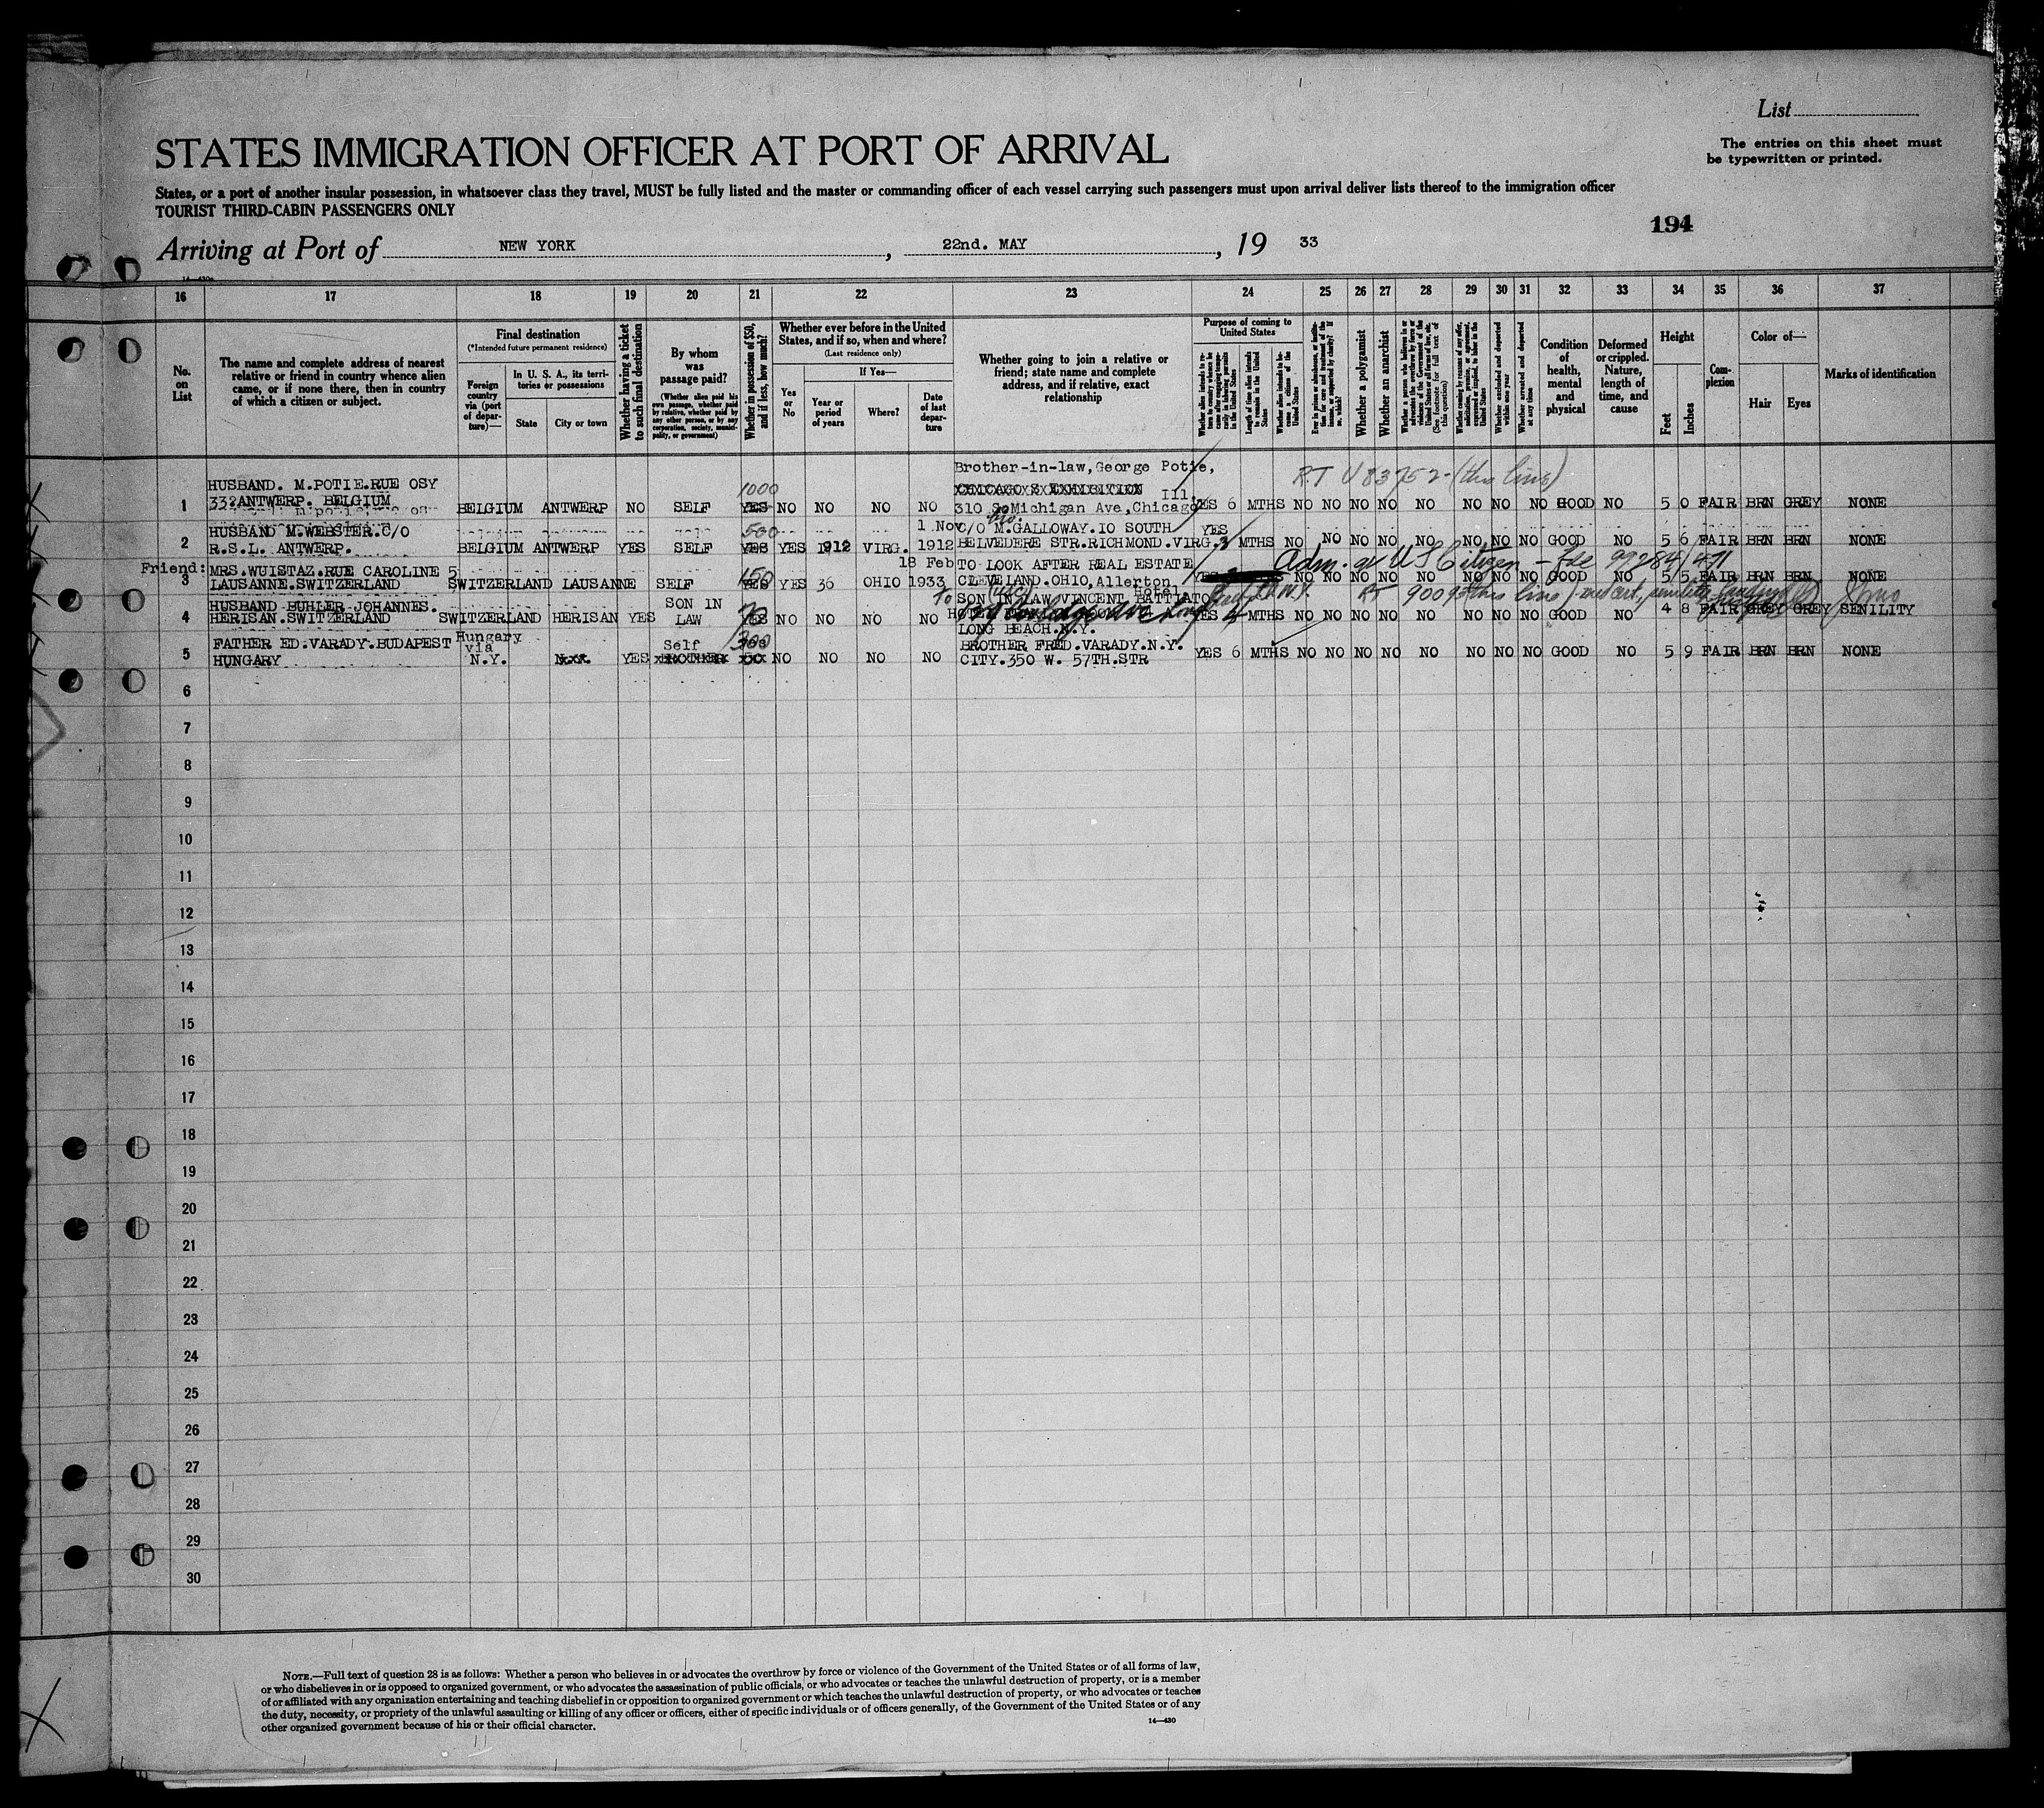 List
The entries on this sheet must
be typewritten or printed.
STATES IMMIGRATION OFFICER AT PORT OF ARRIVAL
States, or a port of another insular possession, in whatsoever class they travel, MUST be fully listed and the master or commanding officer of each vessel carrying such passengers must upon arrival deliver lists thereof to the immigration officer
TOURIST THIRD-CABIN PASSENGERS ONLY
194
Arriving at Port of NEW YORK, 22nd. MAY, 19 33
16 17 18 19 20 21 22 23 24 25 26 27 28 29 30 31 32 33 34 35 36 37
No. on List
The name and complete address of nearest
relative or friend in country whence alien
came, or if none there, then in country
of which a citizen or subject.
Final destination
(*Intended future permanent residence)
Foreign country via (port of departure)—
In U. S. A., its territories or possessions
State
City or town
Whether having a ticket to such final destination
By whom was passage paid?
(Whether alien paid his own passage, whether paid by relative, whether paid by any other person, or by any corporation, society, municipality, or government)
Whether in possession of $50, and if less, how much?
Whether ever before in the United
States, and if so, when and where?
(Last residence only)
Yes or No
If Yes—
Year or period of years
Where?
Date of last departure
Whether going to join a relative or
friend; state name and complete
address, and if relative, exact
relationship
Purpose of coming to United States
Length of time alien intends to remain in the United States
Whether alien intends to become a citizen of the United States
Whether a polygamist
Whether an anarchist
Whether excluded and deported within one year
Whether arrested and deported at any time
Condition of health, mental and physical
Deformed or crippled. Nature, length of time, and cause
Height
Feet
Inches
Complexion
Color of—
Hair
Eyes
Marks of identification
Brother-in-law, George Potie,
RT U 83752 (this line)
HUSBAND. M.POTIE.RUE OSY 1000 CHICAGO S EXHIBITION Ill.
1 33? ANTWERP. BELGIUM BELGIUM ANTWERP NO SELF YES NO NO NO NO 310 So Michigan Ave, Chicago YES 6 MTHS NO NO NO NO NO NO NO NO GOOD NO 5 0 FAIR BRN GREY NONE
HUSBAND M.WEBSTER.C/O 500 1 Nov C/O M.GALLOWAY.IO SOUTH YES
2 R.S.L. ANTWERP. BELGIUM ANTWERP YES SELF YES YES 1912 VIRG. 1912 BELVEDERE STR.RICHMOND.VIRG. MTHS NO NO NO NO NO NO NO NO GOOD NO 5 6 FAIR BRN BRN NONE
Friend: MRS.WUISTAZ.RUE CAROLINE 5 150 18 Feb TO LOOK AFTER REAL ESTATE Adm. as US Citizen - file 99284/471
3 LAUSANNE.SWITZERLAND SWITZERLAND LAUSANNE SELF YES YES 36 OHIO 1933 CLEVELAND.OHIO, Allerton Hotel NO NO NO NO NO NO NO NO GOOD NO 5 5 FAIR BRN BRN NONE
HUSBAND BUHLER JOHANNES. SON IN SON IN LAW VINCENT BATTIATO
4 HERISAN.SWITZERLAND SWITZERLAND HERISAN YES LAW YES NO NO NO NO YES MTHS NO NO NO NO NO NO NO NO GOOD NO 4 8 FAIR GREY GREY SENILITY
LONG BEACH.N.Y.
FATHER ED.VARADY.BUDAPEST Hungary via Self 300 BROTHER FRED.VARADY.N.Y.
5 HUNGARY N.Y. YES BROTHER NO NO NO NO CITY.350 W. 57TH.STR YES 6 MTHS NO NO NO NO NO NO NO NO GOOD NO 5 9 FAIR BRN BRN NONE
6
7
8
9
10
11
12
13
14
15
16
17
18
19
20
21
22
23
24
25
26
27
28
29
30
NOTE.—Full text of question 28 is as follows: Whether a person who believes in or advocates the overthrow by force or violence of the Government of the United States or of all forms of law,
or who disbelieves in or is opposed to organized government, or who advocates the assassination of public officials, or who advocates or teaches the unlawful destruction of property, or is a member
of or affiliated with any organization entertaining and teaching disbelief in or opposition to organized government or which teaches the unlawful destruction of property, or who advocates or teaches
the duty, necessity, or propriety of the unlawful assaulting or killing of any officer or officers, either of specific individuals or of officers generally, of the Government of the United States or of any
other organized government because of his or their official character.
14—430